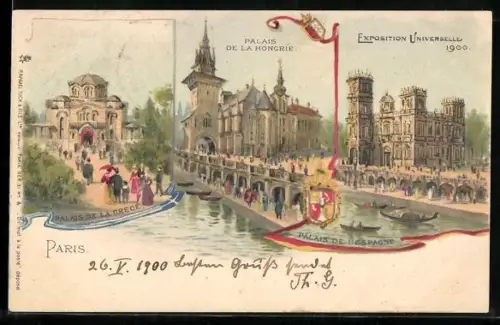 PALAIS
DE LA HONGRIE
EXPOSITION UNIVERSELLE
1900.
PALAIS DE LA GRÈCE
PALAIS DE L'ESPAGNE
PARIS.
26. V. 1900 Besten Gruß sendet
Th. G.